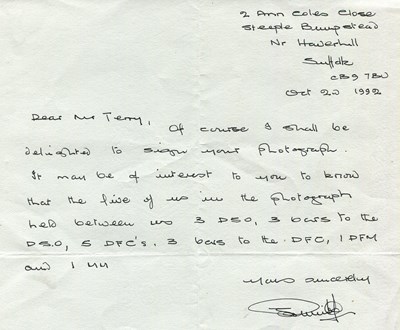 2 Ann Coles Close
Steeple Bumpstead
Nr Haverhill
Suffolk
CB9 7BW
Oct 20 1992
Dear Mr Terry,
Of course I shall be
delighted to sign your photograph.
It may be of interest to you to know
that the five of us in the photograph
held between us 3 DSO, 3 bars to the
DSO, 5 DFC's. 3 bars to the DFC, 1 DFM
and 1 MM
Yours sincerely